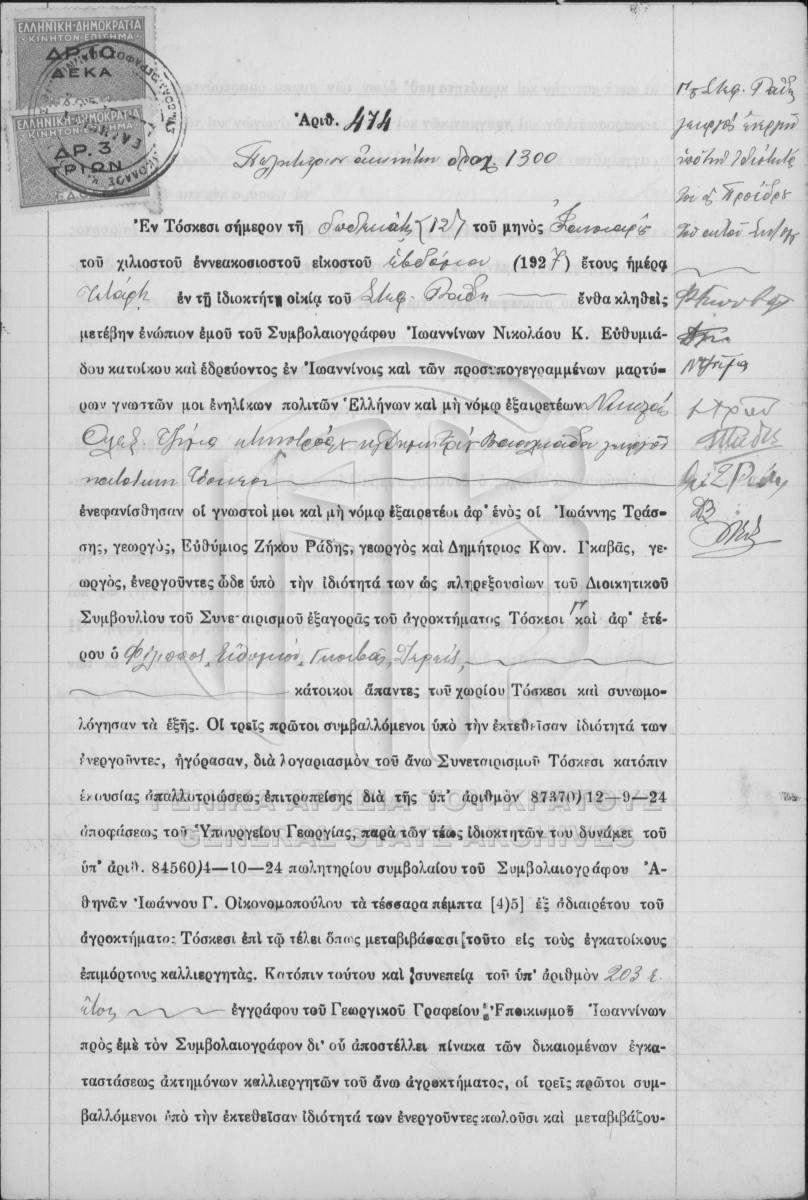 ΕΛΛΗΝΙΚΗ·ΔΗΜΟΚΡΑΤΙΑ
ΚΙΝΗΤΟΝ·ΕΠΙΣΗΜΑ
ΔΡ·10
ΔΕΚΑ
ΕΛΛΗΝΙΚΗ·ΔΗΜΟΚΡΑΤΙΑ
ΚΙΝΗΤΟΝ·ΕΠΙΣΗΜΑ
ΔΡ. 3
ΤΡΙΩΝ
Ἀριθ. 474
Πωλητήριον ἀκινήτου δραχ. 1300
Ἐν Τόσκεσι σήμερον τῇ δωδεκάτῃ (12) τοῦ μηνὸς Ἰανουαρίου
τοῦ χιλιοστοῦ ἐννεακοσιοστοῦ εἰκοστοῦ ἑβδόμου (1927) ἔτους ἡμέρᾳ
Τετάρτῃ ἐν τῇ ἰδιοκτήτῳ οἰκίᾳ τοῦ Στεφ. Ράδη ἔνθα κληθεὶς
μετέβην ἐνώπιον ἐμοῦ τοῦ Συμβολαιογράφου Ἰωαννίνων Νικολάου Κ. Εὐθυμιά-
δου κατοίκου καὶ ἑδρεύοντος ἐν Ἰωαννίνοις καὶ τῶν προσυπογεγραμμένων μαρτύ-
ρων γνωστῶν μοι ἐνηλίκων πολιτῶν Ἑλλήνων καὶ μὴ νόμῳ ἐξαιρετέων Νικολάου
Τζίμα κτηνοτρόφου Δημητρίου γεωργοῦ
κατοίκων Τόσκεσι
ἐνεφανίσθησαν οἱ γνωστοί μοι καὶ μὴ νόμῳ ἐξαιρετέοι ἀφ᾽ ἑνὸς οἱ Ἰωάννης Τράσ-
σης, γεωργός, Εὐθύμιος Ζήκου Ράδης, γεωργὸς καὶ Δημήτριος Κων. Γκαβᾶς, γε-
ωργός, ἐνεργοῦντες ὧδε ὑπὸ τὴν ἰδιότητά των ὡς πληρεξουσίων τοῦ Διοικητικοῦ
Συμβουλίου τοῦ Συνεταιρισμοῦ ἐξαγορᾶς τοῦ ἀγροκτήματος Τόσκεσι καὶ ἀφ᾽ ἑτέ-
ρου ὁ Φίλιππος Εὐθυμίου Γκαβᾶς, Ἱερεύς,
κάτοικοι ἅπαντες τοῦ χωρίου Τόσκεσι καὶ συνωμο-
λόγησαν τὰ ἑξῆς. Οἱ τρεῖς πρῶτοι συμβαλλόμενοι ὑπὸ τὴν ἐκτεθεῖσαν ἰδιότητά των
ἐνεργοῦντες, ἠγόρασαν, διὰ λογαριασμὸν τοῦ ἄνω Συνεταιρισμοῦ Τόσκεσι κατόπιν
ἑκουσίας ἀπαλλοτριώσεως ἐπιτραπείσης διὰ τῆς ὑπ᾽ ἀριθμὸν 87370)12—9—24
ἀποφάσεως τοῦ Ὑπουργείου Γεωργίας, παρὰ τῶν τέως ἰδιοκτητῶν του δυνάμει τοῦ
ὑπ᾽ ἀριθ. 84560)4—10—24 πωλητηρίου συμβολαίου τοῦ Συμβολαιογράφου Ἀ-
θηνῶν Ἰωάννου Γ. Οἰκονομοπούλου τὰ τέσσαρα πέμπτα [4)5] ἐξ ἀδιαιρέτου τοῦ
ἀγροκτήματος Τόσκεσι ἐπὶ τῷ τέλει ὅπως μεταβιβάσωσι τοῦτο εἰς τοὺς ἐγκατοίκους
ἐπιμόρτους καλλιεργητάς. Κατόπιν τούτου καὶ συνεπείᾳ τοῦ ὑπ᾽ ἀριθμὸν 203 ἐ.
ἔτους ἐγγράφου τοῦ Γεωργικοῦ Γραφείου Ἐποικισμοῦ Ἰωαννίνων
πρὸς ἐμὲ τὸν Συμβολαιογράφον δι᾽ οὗ ἀποστέλλει πίνακα τῶν δικαιομένων ἐγκα-
ταστάσεως ἀκτημόνων καλλιεργητῶν τοῦ ἄνω ἀγροκτήματος, οἱ τρεῖς πρῶτοι συμ-
βαλλόμενοι ὑπὸ τὴν ἐκτεθεῖσαν ἰδιότητά των ἐνεργοῦντες πωλοῦσι καὶ μεταβιβάζου-
Στεφ. Ράδης
γεωργὸς ἐνεργῶν
ὑπὸ τὴν ἰδιότητά
του ὡς Προέδρου
τοῦ αὐτοῦ
ΓΕΝΙΚΑ ΑΡΧΕΙΑ ΤΟΥ ΚΡΑΤΟΥΣ
GENERAL STATE ARCHIVES